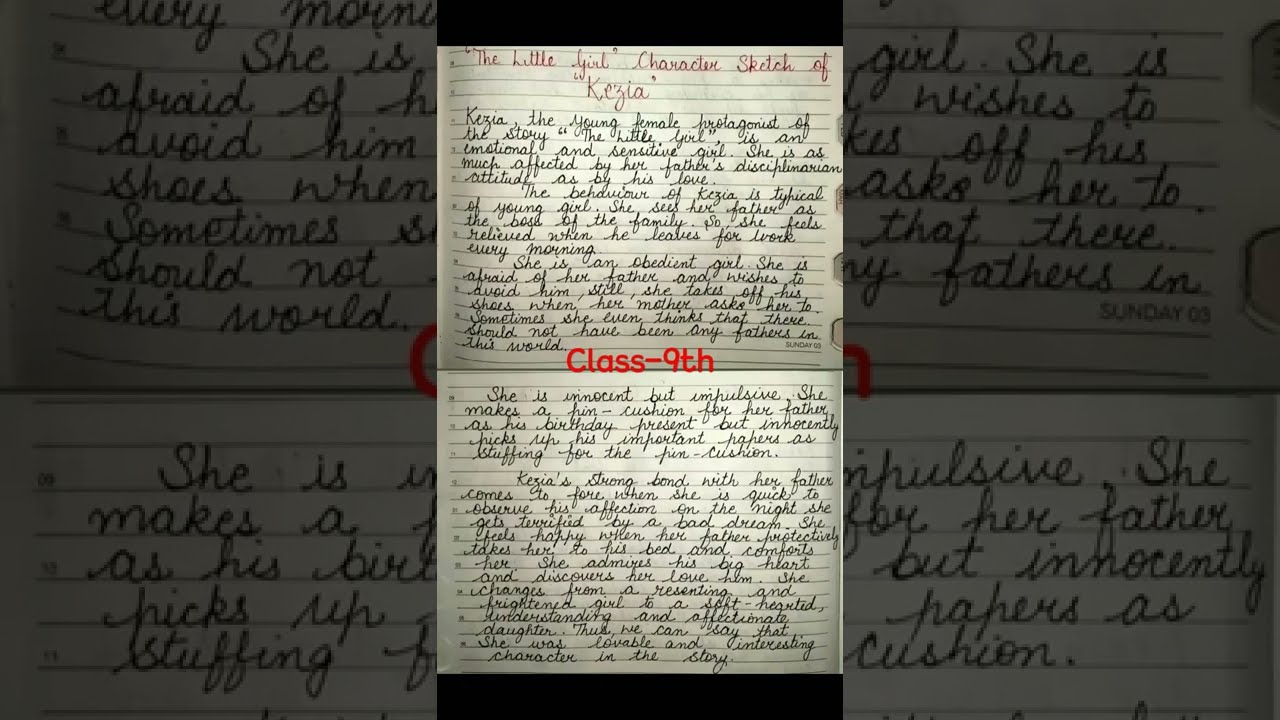 "The Little Girl" Character Sketch of
"Kezia"
Kezia, the young female protagonist of
the story "The Little Girl", is an
emotional and sensitive girl. She is as
much affected by her father's disciplinarian
attitude as by his love.
The behaviour of Kezia is typical
of young girl. She sees her father as
the boss of the family. So, she feels
relieved when he leaves for work
every morning.
She is an obedient girl. She is
afraid of her father and wishes to
avoid him, still, she takes off his
shoes when her mother asks her to.
Sometimes she even thinks that there
should not have been any fathers in
this world.
SUNDAY 03
Class-9th
She is innocent but impulsive. She
makes a pin-cushion for her father
as his birthday present but innocently
picks up his important papers as
stuffing for the pin-cushion.
Kezia's strong bond with her father
comes to fore when she is quick to
observe his affection on the night she
gets terrified by a bad dream. She
feels happy when her father protectively
takes her to his bed and comforts
her. She admires his big heart
and discovers her love him. She
changes from a resenting and
frightened girl to a soft-hearted,
understanding and affectionate
daughter. Thus, we can say that,
She was lovable and interesting
character in the story.